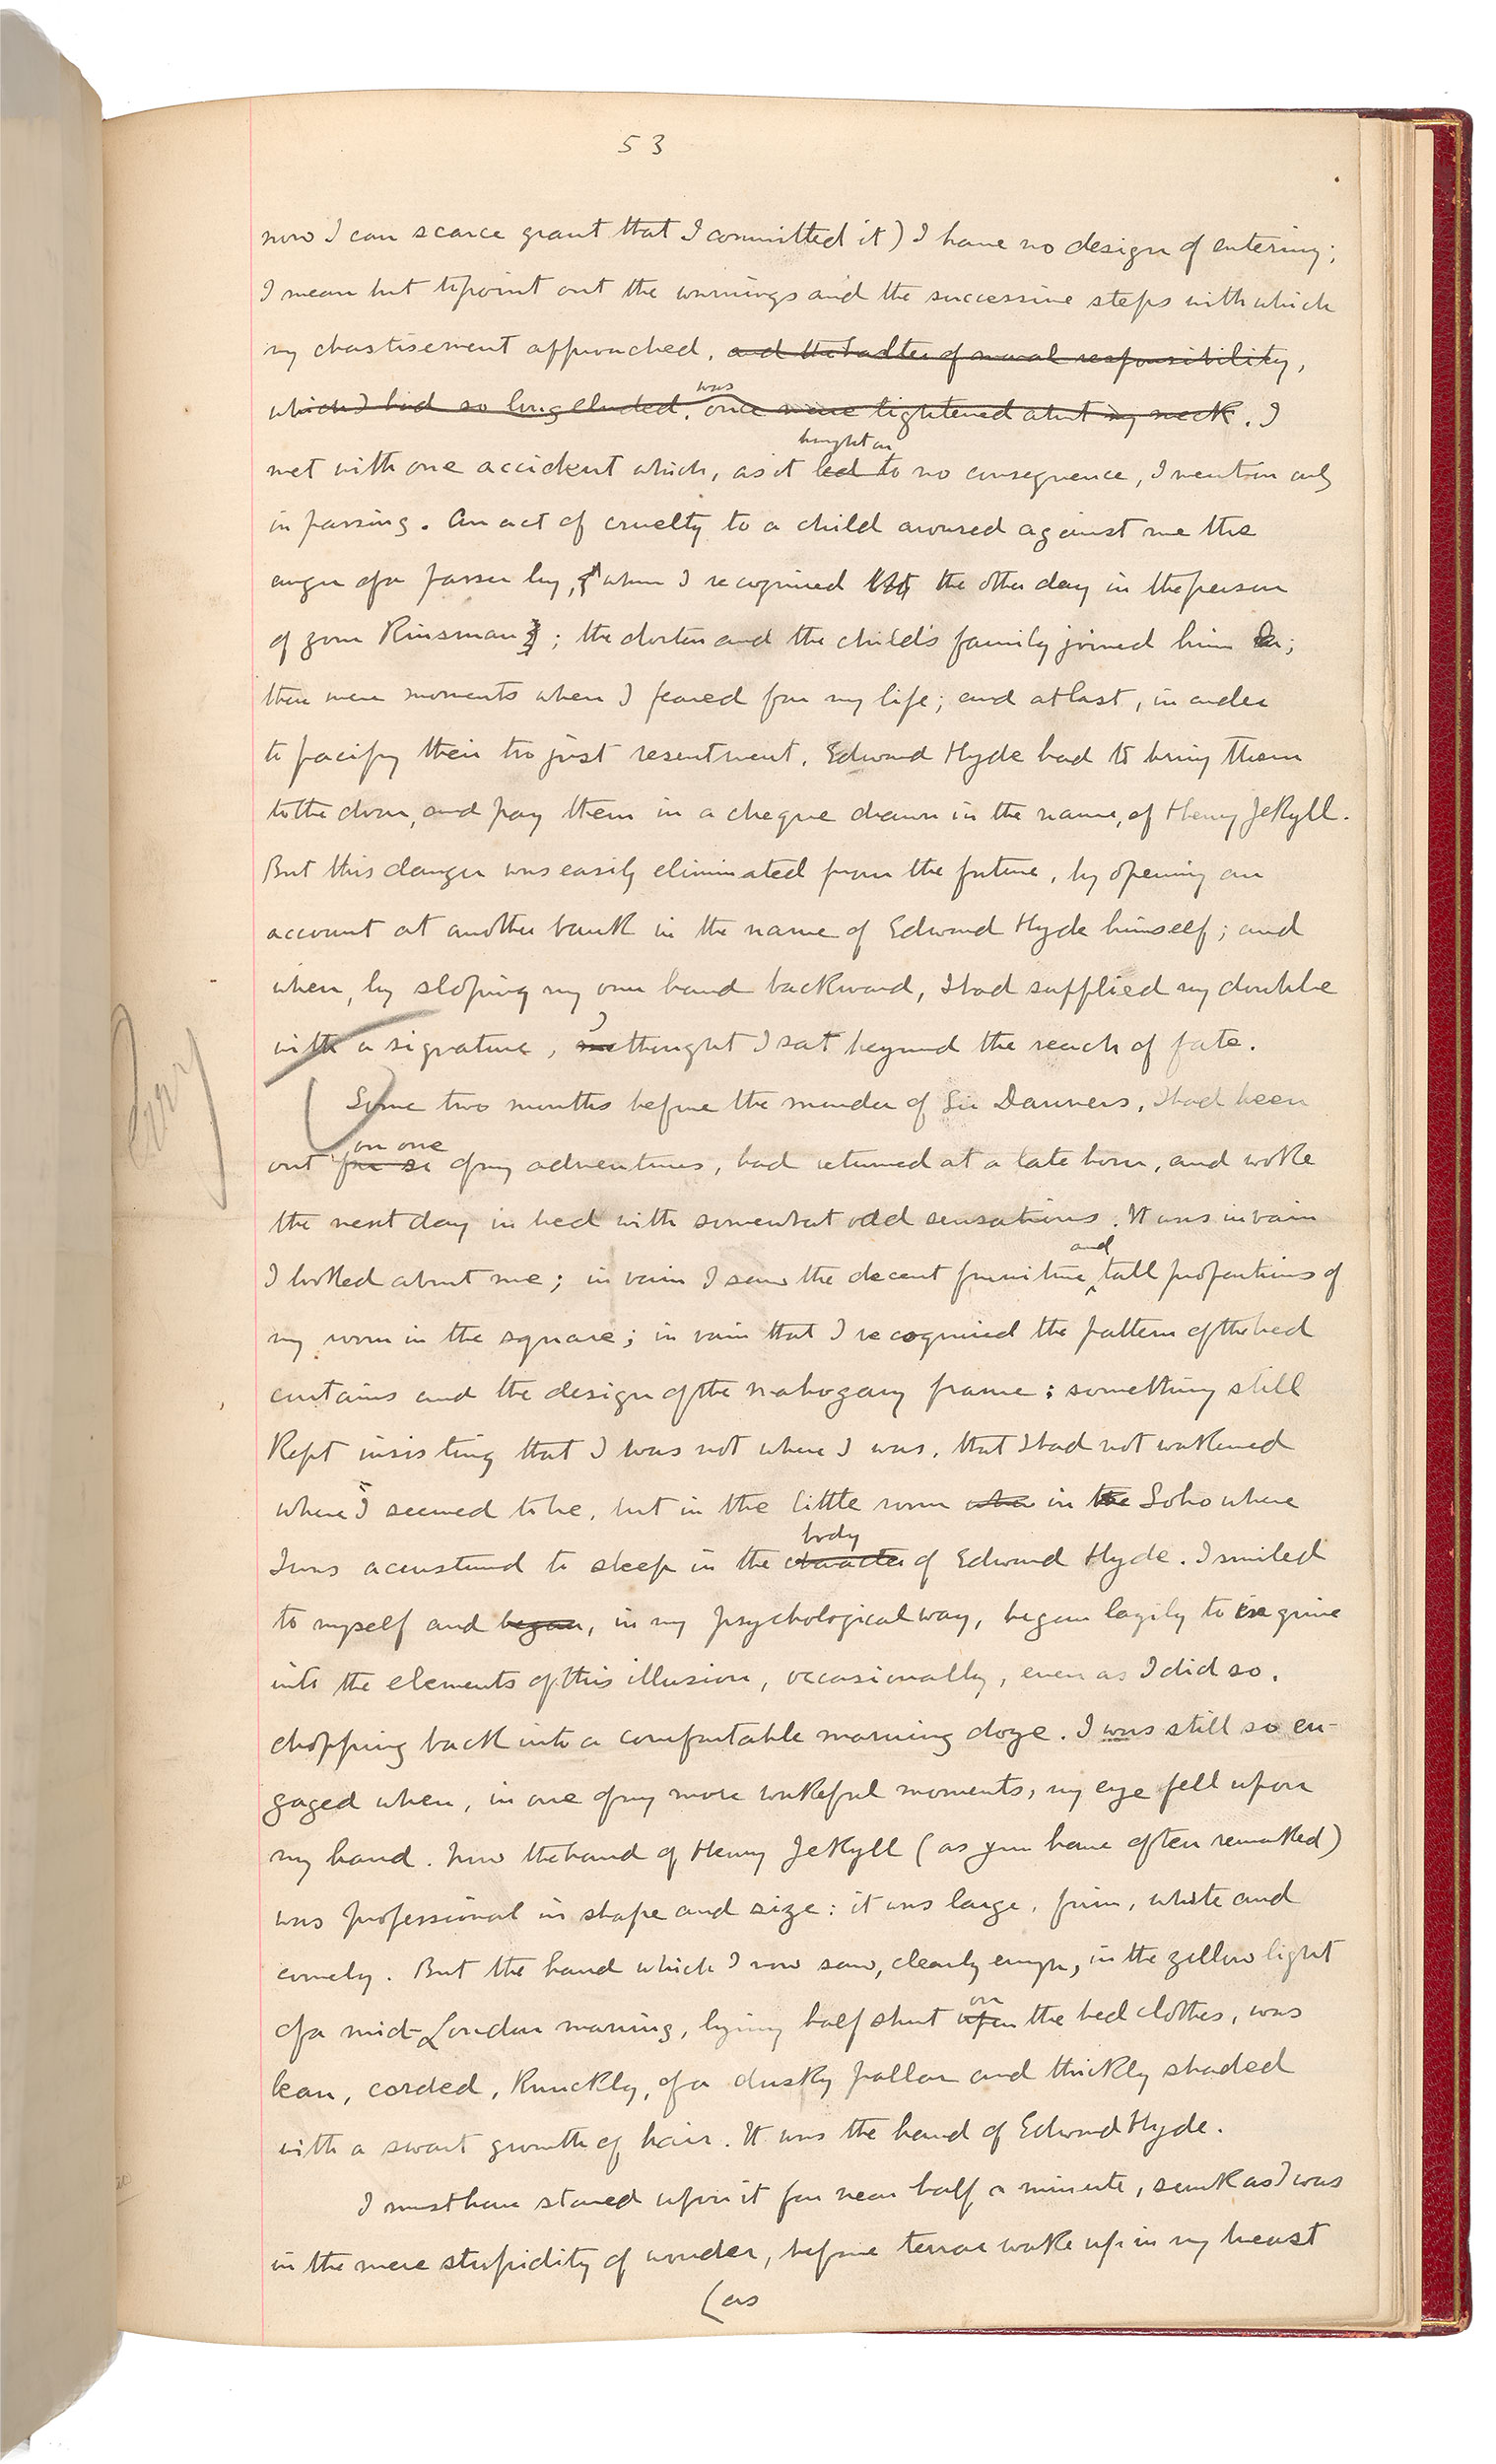 53
now I can scarce grant that I committed it) I have no design of entering;
I mean but to point out the warnings and the successive steps with which
my chastisement approached, and the halter of moral responsibility,
was
which I had so long eluded, once more tightened about my neck. I
brought on
met with one accident which, as it led to no consequence, I mention only
in passing. An act of cruelty to a child aroused against me the
anger of a passer by, whom I recognised the other day in the person
of your Kinsman; the doctor and the child's family joined him;
there were moments when I feared for my life; and at last, in order
to pacify their too just resentment, Edward Hyde had to bring them
to the door, and pay them in a cheque drawn in the name, of Henry Jekyll.
But this danger was easily eliminated from the future, by opening an
account at another bank in the name of Edward Hyde himself; and
when, by sloping my own hand backward, I had supplied my double
with a signature, I thought I sat beyond the reach of fate.
Some two months before the murder of Sir Danvers, I had been
on one
out for of my adventures, had returned at a late hour, and woke
the next day in bed with somewhat odd sensations. It was in vain
and
I looked about me; in vain I saw the decent furniture tall proportions of
my room in the square; in vain that I recognised the pattern of the bed
curtains and the design of the mahogany frame: something still
Kept insisting that I was not where I was, that I had not wakened
where I seemed to be, but in the little room where in the Soho where
body
I was accustomed to sleep in the character of Edward Hyde. I smiled
to myself and began, in my psychological way, began lazily to inquire
into the elements of this illusion, occasionally, even as I did so,
dropping back into a comfortable morning doze. I was still so en-
gaged when, in one of my more wakeful moments, my eye fell upon
my hand. Now the hand of Henry Jekyll (as you have often remarked)
was professional in shape and size: it was large, firm, white and
comely. But the hand which I now saw, clearly enough, in the yellow light
on
of a mid-London morning, lying half shut upon the bed clothes, was
lean, corded, Knuckly, of a dusky pallor and thickly shaded
with a swart growth of hair. It was the hand of Edward Hyde.
I must have stared upon it for near half a minute, sunk as I was
in the mere stupidity of wonder, before terror woke up in my breast
(as